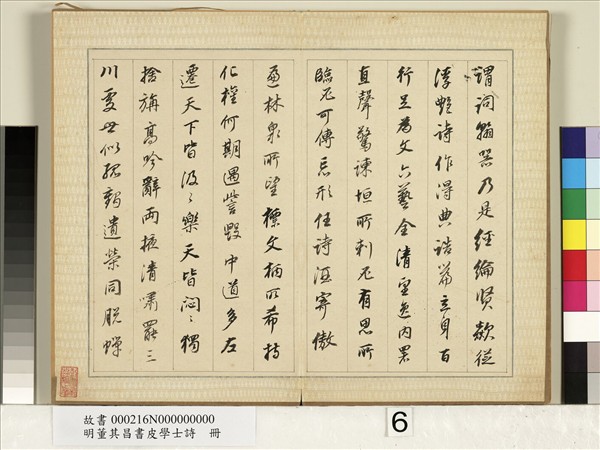 謂詞翰器乃是經綸賢欻從
浮艷詩作得典誥篇立身百
行足為文六藝全清望逸內署
直聲驚諫垣所刺必有思所
臨必可傳忘形任詩酒寄傲
遍林泉所望標文柄所希持
化權何期遇訾毀中道多左
遷天下皆汲〻樂天皆悶〻獨
捨旃高吟辭兩掖清嘯罷三
川處世似孤鶴遺榮同脫蟬
故書 000216N000000000
明董其昌書皮學士詩 冊
6